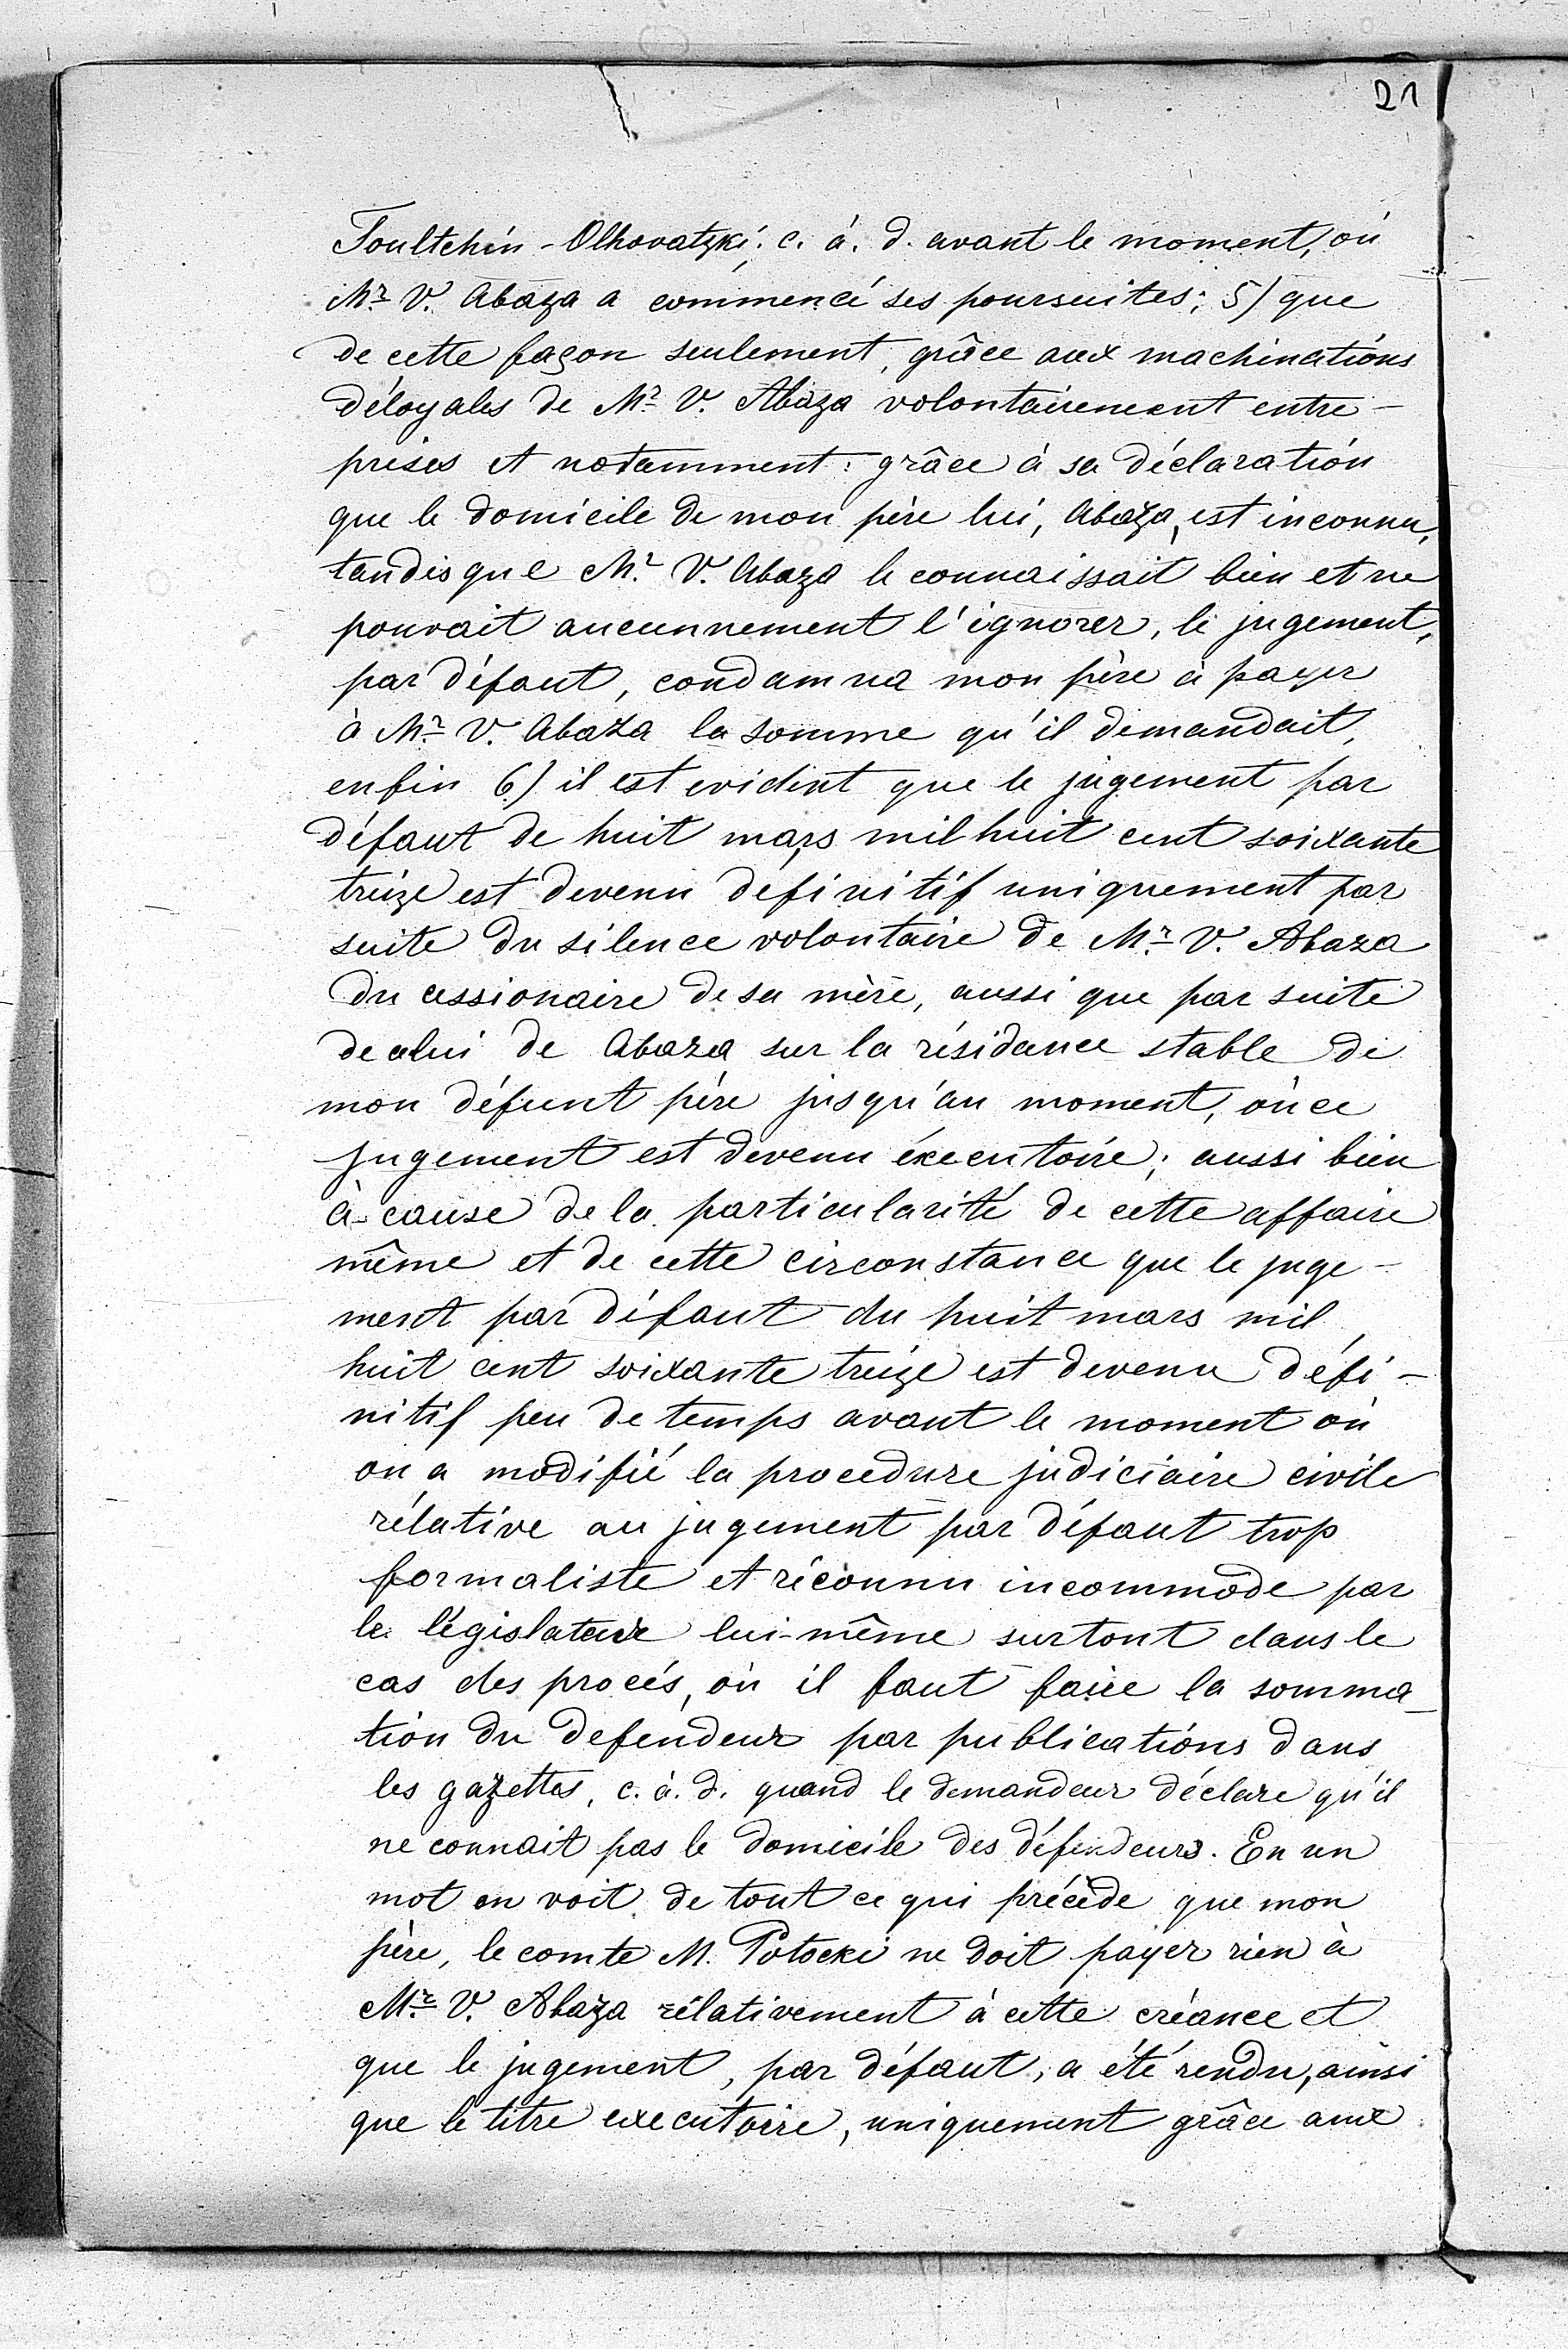 21
Toultchin-Olhovatzki; c. à. d. avant le moment, où
Mr V. Abaza a commencé ses poursuites; 5) que
de cette façon seulement, grâce aux machinations
déloyales de Mr V. Abaza volontairement entre-
prises et notamment: grâce à sa déclaration
que le domicile de mon père lui, Abaza, est inconnu,
tandisque Mr V. Abaza le connaissait bien et ne
pouvait aucunnement l'ignorer, le jugement,
par défaut, condamna mon père à payer
à Mr V. Abaza la somme qu'il demandait,
enfin 6) il est evident que le jugement par
défaut de huit mars mil huit cent soixante
treize est devenu définitif uniquement par
suite du silence volontaire de Mr V. Abaza
du cessionaire de sa mère, aussi que par suite
de celui de Abaza sur la résidance stable de
mon défunt père jusqu'au moment, où ce
jugement est devenu éxecutoire; aussi bien
à cause de la particularité de cette affaire
même et de cette circonstance que le juge-
ment par défaut du huit mars mil
huit cent soixante treize est devenu défi-
nitif peu de temps avant le moment où
on a modifié la procedure judiciaire civile
rélative au jugement par défaut trop
formaliste et réconnu incommode par
le législateur lui-même surtout dans le
cas des procés, où il faut faire la somma-
tion du defendeur par publications dans
les gazettes, c. à. d. quand le demandeur déclare qu'il
ne connait pas le domicile des défendeurs. En un
mot on voit de tout ce qui précède que mon
père, le comte M. Potocki ne doit payer rien à
Mr V. Abaza rélativement à cette créance et
que le jugement, par défaut, a été rendu, ainsi
que le titre executoire, uniquement grâce aux